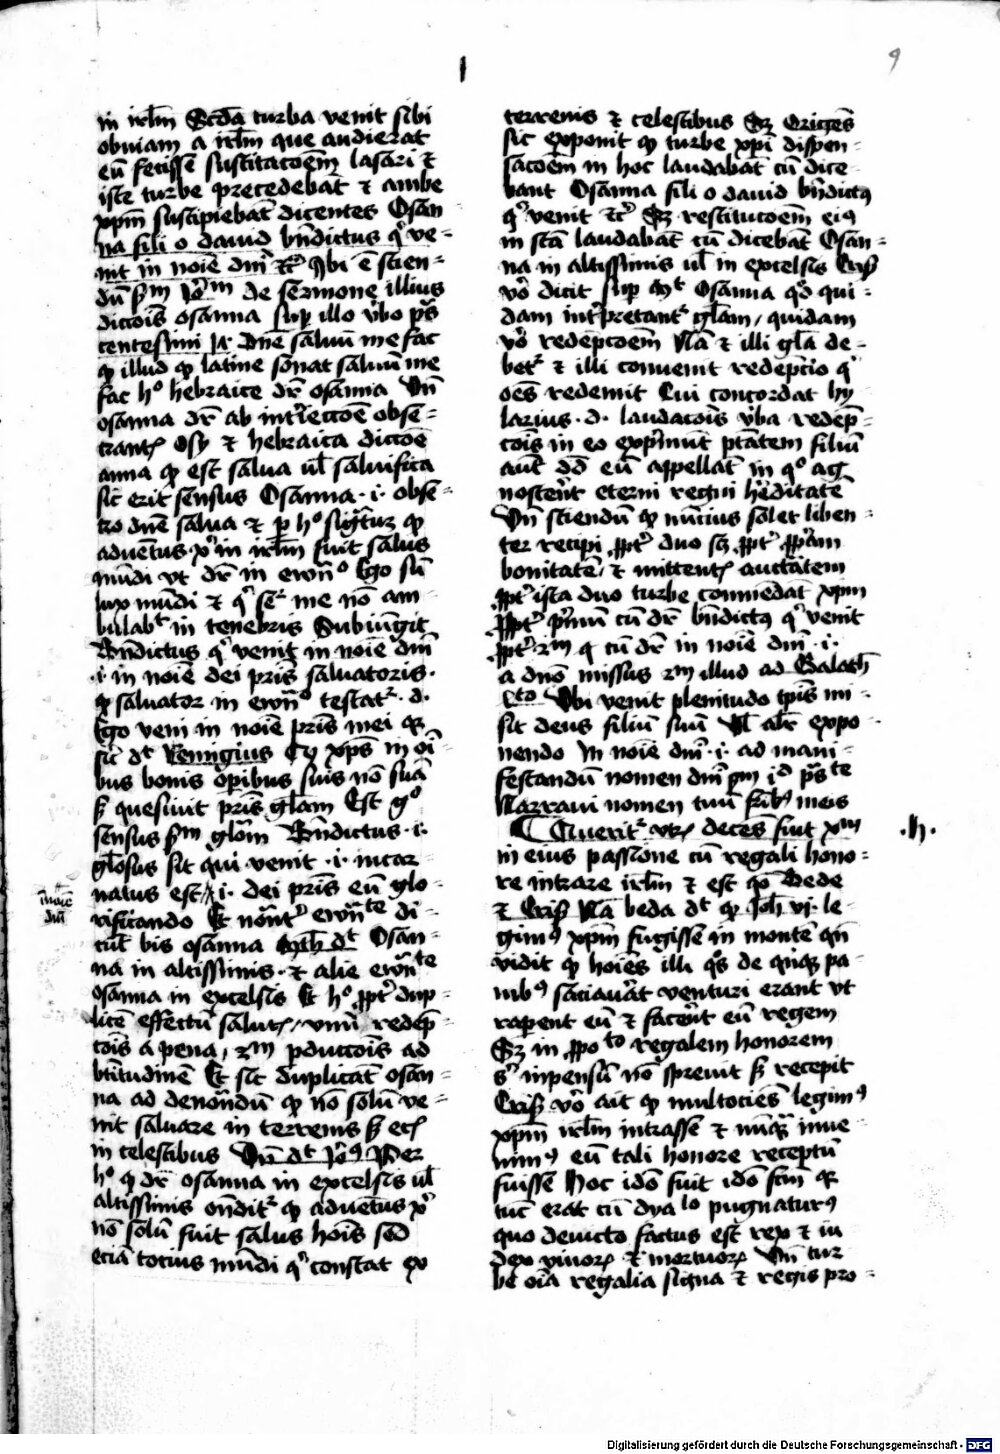 I
9
in irl̄m Scd̄a turba venit sibi
obuiam a irl̄m que audierat
eū fecisse suscitacōem lasari ⁊
iste turbe precedebāt ⁊ ambe
xp̄m suscipiebāt dicentes Osan
na fili o dauid bn̄dictus qͥ ve-
nit in noīe dn̄i ⁊cͣ Vbi ē scien-
dū sᷤm Jo᷑m de sermone illius
dictōis osanna sup illo v̓bo pͣs
centesimi Dn̄e saluū me fac
ꝙ illud ꝙ latine sonat saluū me
fac hͦ hebraice dr̄ osanna Vn̄
osanna dr̄ ab int̓iectōe obse-
crantꝭ Osy ⁊ hebraica dictōe
anna ꝙ est salua ul̄ saluifica
sic erit sensus Osanna ·i· obse-
cro dn̄e salua ⁊ p hͦ sig͛tur ꝙ
aduentus xͥ in irl̄m fuit salus
mūdi vt dr̄ in ewnͦ Ego sū
lux mūdi ⁊ qͥ seͬ me nō am
bulabͭ in tenebris Subiūgit
Bn̄dictus qͥ venit in noīe dn̄i
·i· in noīe dei pris saluatoris·
ꝙ saluator in ewnͦ testatͬ ·d·
Ego veni in noīe pris mei ⁊
sic dͭ Remigius Qꝫ xp̄s in oī
bus bonis operibus suis nō suā
sꝫ quesiuit pris gl̄am Est gͦ
sensus sᷤm glōm Bn̄dictus ·i·
gl̄osus sit qui venit ·i· incar
natus est ·i· dei pris eū glo-
noīe
dn̄i
rificando Et no͛ntͬ ewnͭͤ di-
cūt bis osanna dͭ Osan-
na in altissimis · ⁊ alie ewnͭͤ
osanna in excelsis Et hͦ ꝓptͬ dup-
licē effectū salutꝭ / vnū redēp-
cōis a pena / 2m pductōis ad
btītudinē Et sic duplicat osan-
na ad denoͣndū ꝙ nō solū ve-
nit saluare in terrenis sꝫ etꝭ
in celestibus Vn̄ dͭ Joꝰ Per
hͦ ꝙ dr̄ osanna in excelsis ul̄
altissimis on̄ditͬ ꝙ aduentus xͥ
nō solū fuit salus hoīs sed
eciā tocius mūdi qͥ constat ex
terrenis ⁊ celestibus Sꝫ Origēs
sic exponit ꝙ turbe xp̄i dispen-
sacōem in hoc laudabāt cū dice-
bant Osanna fili o dauid bn̄dictꝰ
qͥ venit ⁊cͣ Sꝫ restitucōem eiꝰ
in sc̄a laudabāt cū dicebāt Osan-
na in altissimis ul̄ in excelsis Cris̄
vͦ dicit sup Osanna qͦd qui-
dam int̓pretantͬ gl̄am / quidam
vͦ redēpcōem Nā ⁊ illi gl̄a de-
betͬ ⁊ illi conuenit redēpcio qͥ
oēs redemit Cui concordat hy
larius · d · laudacōis v̓ba redēp-
cōis in eo exp̓mūt ptātem filiū
aūt dd̄ eū appellāt in qͦ ag
nosceret eterni regni he̓ditatē
Vn̄ sciendū ꝙ nūcius solet liben-
ter recipi ꝓptͬ duo scꝫ ꝓptͬ ꝓp̓am
bonitatē / ⁊ mittentꝭ auctātem
ꝓptͬ ista duo turbe cōmēdāt xp̄m
ꝓptͬ pͥmū cū dr̄ bn̄dictꝰ qͥ venit
ꝓptͬ 2m ꝙ cū dr̄ in noīe dn̄i ·i·
a dn̄o missus 2m illud ad Galath̄
4to Vbi venit plenitudo tp̄is mi-
sit deus filiū suū Ul̄ alr̄ expo
nendo In noīe dn̄i ·i· ad mani-
festandū nomen dn̄i
Narraui nomen tuū fr̄ibꝰ meis
Queritͬ vtꝝ decēs fuit xͫ
·h·
in eius passione cū regali hono-
re intrare irl̄m ⁊ est qͦ Bede
⁊ Cris̄ Nā beda dͭ ꝙ Joh̄ vj· le-
gimꝰ xp̄m fugisse in montē qn̄
vidit ꝙ hoīes illi qͦs de quinqꝫ pa-
nibꝰ saciau̓at venturi erant vt
raperent eū ⁊ face̓nt eū regem
Sꝫ in ꝓpoͭͦ regalem honorem
sͥ inpensū nō spreuit sꝫ recepit
Cris̄ vͦ ait ꝙ multociēs legimꝰ
xp̄m irl̄m intrasse ⁊ nūqͣꝫ inue-
nimꝰ eū tali honore receptū
fuisse Hoc idō fuit idō fcm̄ qꝛ
tūc erat cū dyaͦlo pugnaturꝰ
quo deuicto factus est rex ⁊ iu
dex viuoꝝ ⁊ mortuoꝝ Vn̄ tur
be oīa regalia signa ⁊ regis pro-
Digitalisierung gefördert durch die Deutsche Forschungsgemeinschaft - DFG